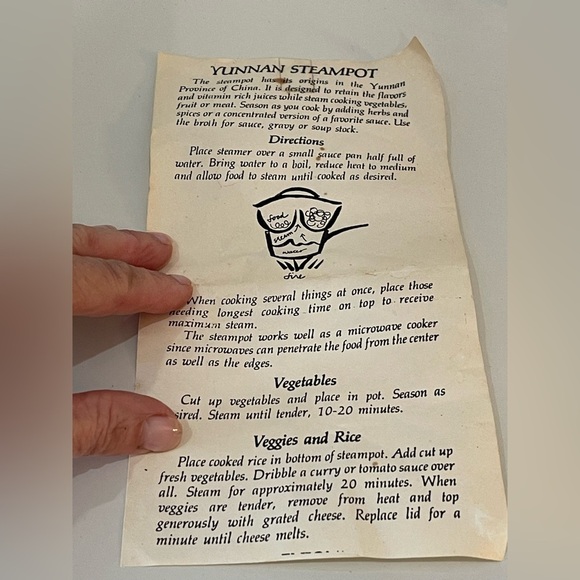 YUNNAN STEAMPOT
The steampot has its origins in the Yunnan
Province of China. It is designed to retain the flavors
and vitamin rich juices while steam cooking vegetables,
fruit or meat. Season as you cook by adding herbs and
spices or a concentrated version of a favorite sauce. Use
the broth for sauce, gravy or soup stock.
Directions
Place steamer over a small sauce pan half full of
water. Bring water to a boil, reduce heat to medium
and allow food to steam until cooked as desired.
food
steam
water
fire
When cooking several things at once, place those
eeding longest cooking time on top to receive
maximum steam.
The steampot works well as a microwave cooker
since microwaves can penetrate the food from the center
as well as the edges.
Vegetables
Cut up vegetables and place in pot. Season as
sired. Steam until tender, 10-20 minutes.
Veggies and Rice
Place cooked rice in bottom of steampot. Add cut up
fresh vegetables. Dribble a curry or tomato sauce over
all. Steam for approximately 20 minutes. When
veggies are tender, remove from heat and top
generously with grated cheese. Replace lid for a
minute until cheese melts.